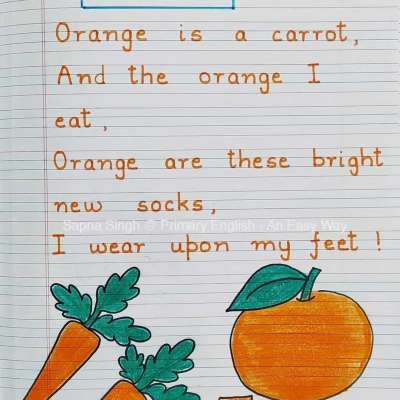 Orange is a carrot,
And the orange I
eat,
Orange are these bright
new socks,
Sapna Singh @ Primary English : An Easy Way
I wear upon my feet !